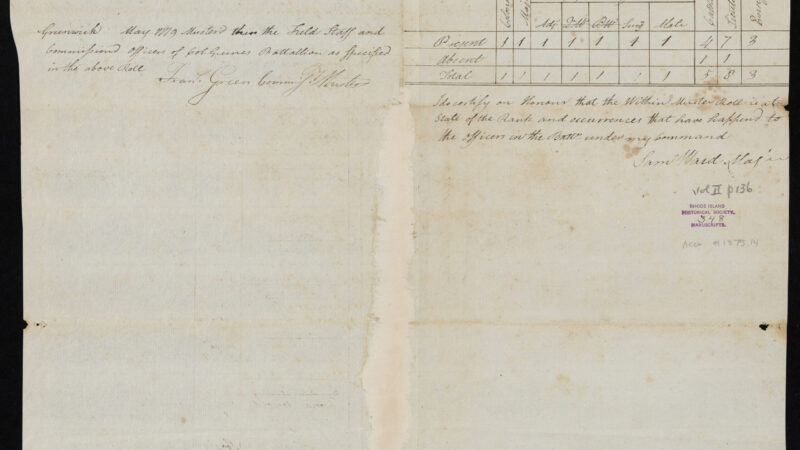 Greenwich May 1779 Musterd then the Field Staff and
Commissiond officers of Col Greenes Battallion as specified
in the above Roll
Fran.s Green Commy Musters
Adj Q.M P.M Surg Mate
Present 1 1 1 1 1 1 1 4 7 3
Absent 1 1
Total 1 1 1 1 1 1 1 5 8 3
I do certify on Honour that the Within Muster Roll is a
State of the Rank and occurrences that have happend to
the officers in the Batt.n under my Command
Sam Ward Maj
vol II p 136
RHODE ISLAND
HISTORICAL SOCIETY.
348
MANUSCRIPTS.
Acc #1373.14